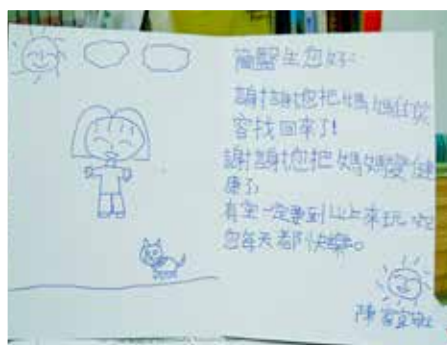 簡醫生您好:
謝謝您把媽媽的笑
容找回來了!
謝謝您把媽媽變健
康了
有空一定要到山上來玩 祝
您每天都快樂。
陳